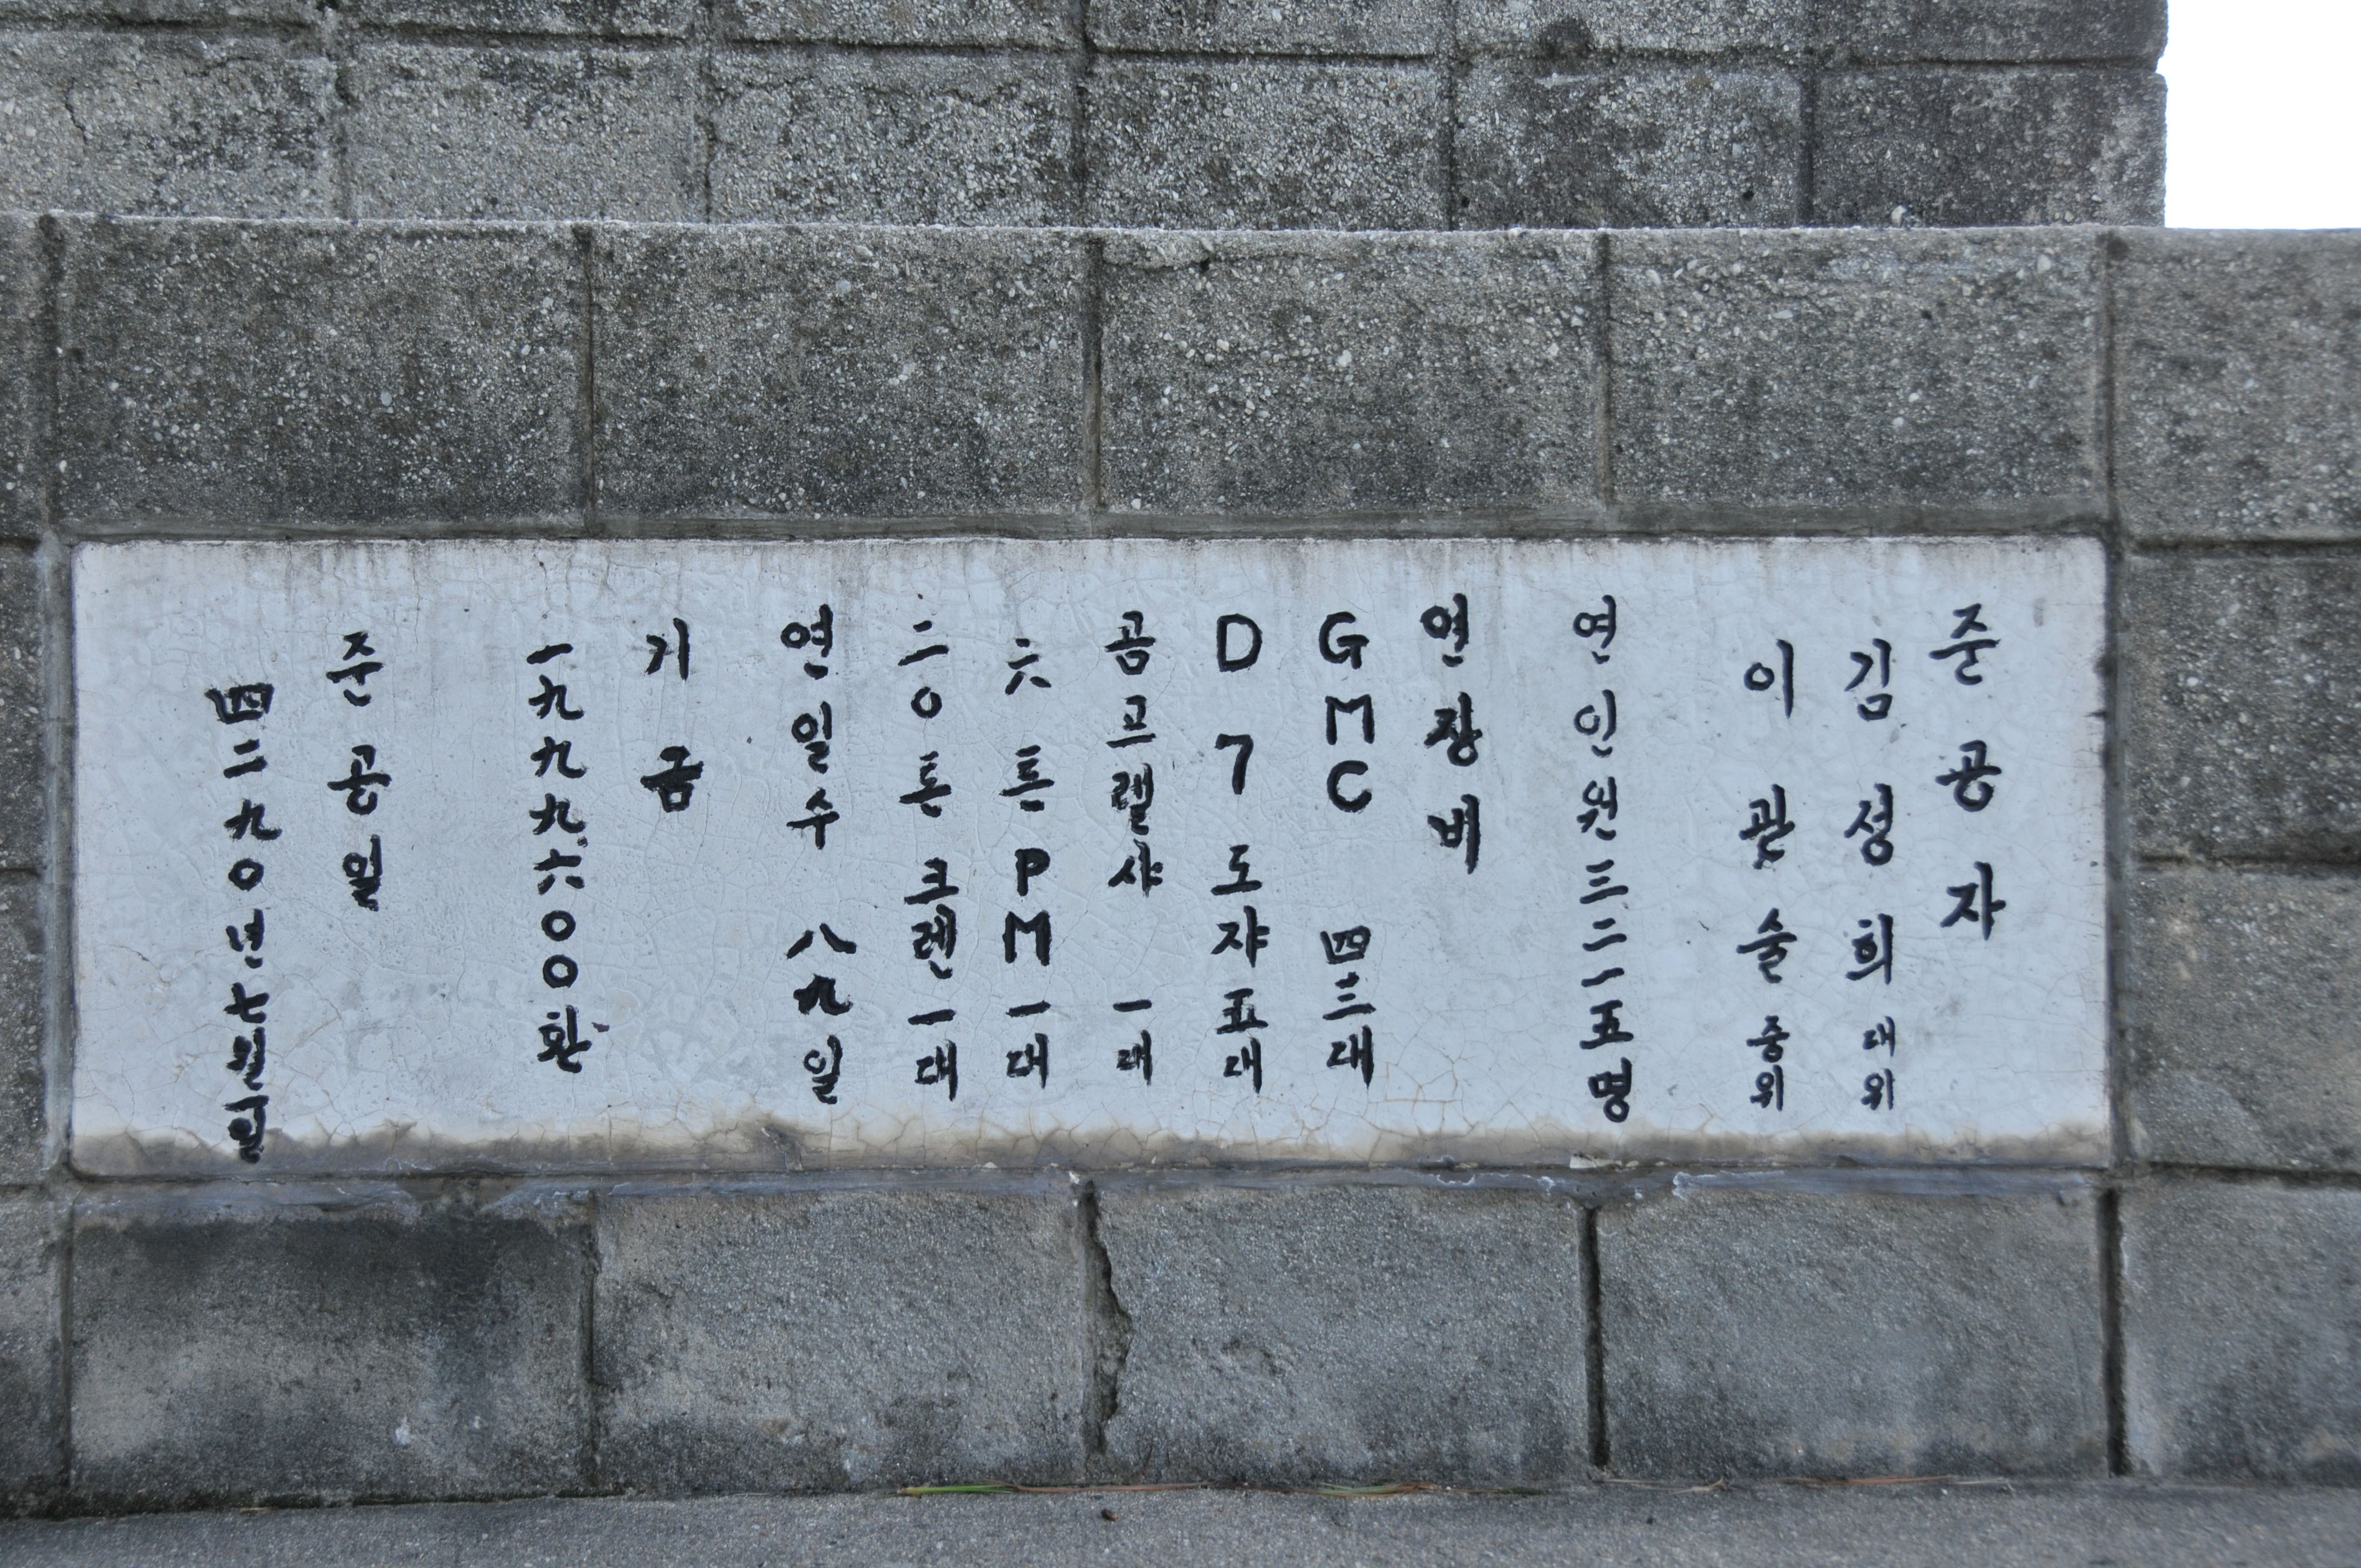 준공자
김성희 대위
이관술 중위
연인원 三二一五명
연장비
GMC 四三대
D7 도쟈 五대
곰프렐샤 一대
六톤 PM 一대
二〇톤 크렌 一대
연일수 八九일
기금
一九九九六〇〇환
준공일
四二九〇년 七월 일